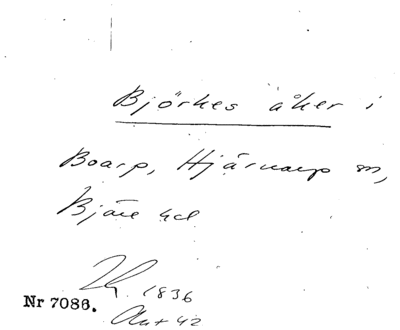 Björkes åker i
Boarp, Hjärnarp sn,
Bjäre hd
1836
Nr 7086.
Akt 42